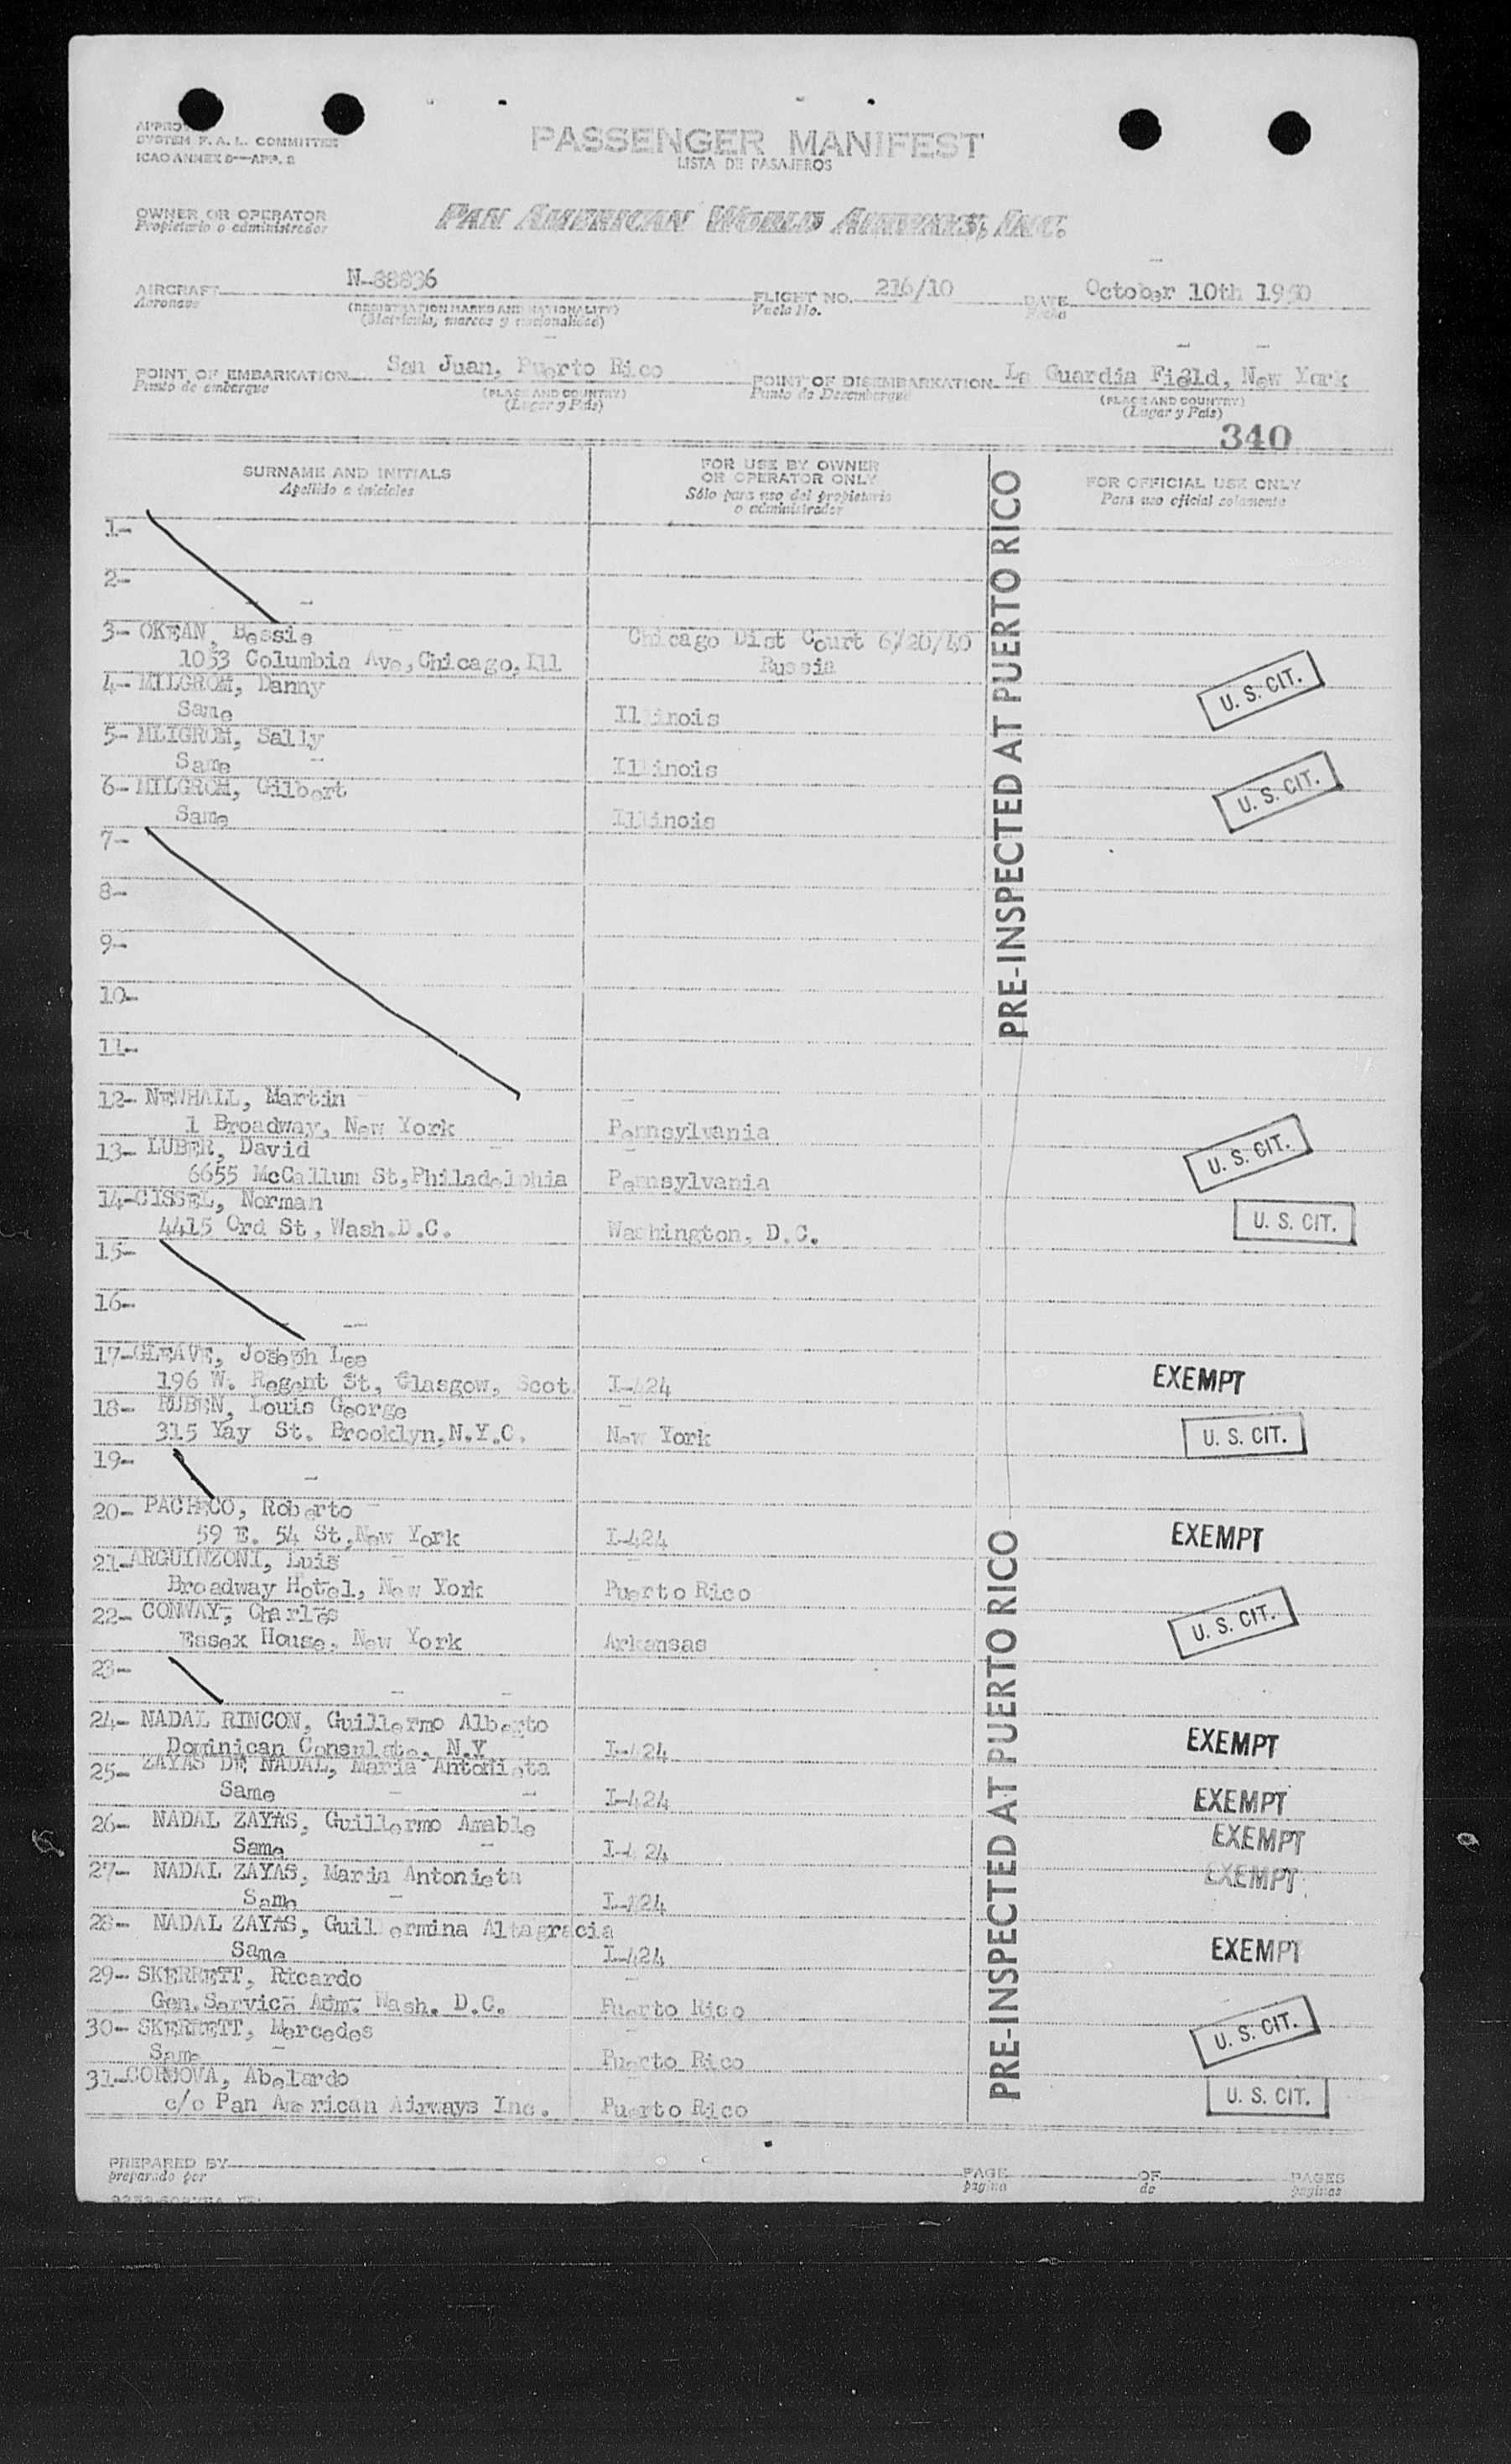 SYSTEM F. A. L. COMMITTEE
ICAO ANNEX 9—APP. 2
PASSENGER MANIFEST
LISTA DE PASAJEROS
OWNER OR OPERATOR
Propietario o administrador
PAN AMERICAN WORLD AIRWAYS, INC.
AIRCRAFT N-88836 FLIGHT NO. 216/10 DATE October 10th 1950
Aeronave (REGISTRATION MARKS AND NATIONALITY) Vuelo No. Fecha
(Matrícula, marcas y nacionalidad)
POINT OF EMBARKATION San Juan, Puerto Rico POINT OF DISEMBARKATION La Guardia Field, New York
Punto de embarque (PLACE AND COUNTRY) Punto de Desembarque (PLACE AND COUNTRY)
(Lugar y País) (Lugar y País)
340
SURNAME AND INITIALS FOR USE BY OWNER OR OPERATOR ONLY FOR OFFICIAL USE ONLY
Apellido e iniciales Sólo para uso del propietario o administrador Para uso oficial solamente
PRE-INSPECTED AT PUERTO RICO
1-
2-
3- OKEAN, Bessie Chicago Dist Court 6/20/40
1053 Columbia Ave, Chicago, Ill Russia
4- MILGROM, Danny U. S. CIT.
Same Illinois
5- MLIGROM, Sally
Same Illinois
6- MILGROM, Gilbert U. S. CIT.
Same Illinois
7-
8-
9-
10-
11-
12- NEWHALL, Martin
1 Broadway, New York Pennsylvania
13- LUBER, David U. S. CIT.
6655 McCallum St, Philadelphia Pennsylvania
14- CISSEL, Norman U. S. CIT.
4415 Ord St, Wash.D.C. Washington, D.C.
15-
16-
17- GLEAVE, Joseph Lee
196 W. Regent St, Glasgow, Scot. I-424 EXEMPT
18- RUBEN, Louis George
315 Yay St. Brooklyn, N.Y.C. New York U. S. CIT.
19-
20- PACHECO, Roberto
59 E. 54 St, New York I-424 EXEMPT
PRE-INSPECTED AT PUERTO RICO
21- ARGUINZONI, Luis
Broadway Hotel, New York Puerto Rico
22- CONWAY, Charles U. S. CIT.
Essex House, New York Arkansas
23-
24- NADAL RINCON, Guillermo Alberto
Dominican Consulate, N.Y I-424 EXEMPT
25- ZAYAS DE NADAL, Maria Antonieta
Same I-424 EXEMPT
26- NADAL ZAYAS, Guillermo Amable EXEMPT
Same I-424
27- NADAL ZAYAS, Maria Antonieta EXEMPT
Same I-424
28- NADAL ZAYAS, Guillermina Altagracia
Same I-424 EXEMPT
29- SKERRETT, Ricardo
Gen. Service Adm. Wash. D.C. Puerto Rico
30- SKERRETT, Mercedes U. S. CIT.
Same Puerto Rico
31- CORDOVA, Abelardo
c/o Pan American Airways Inc. Puerto Rico U. S. CIT.
PREPARED BY PAGE OF PAGES
preparado por página de páginas